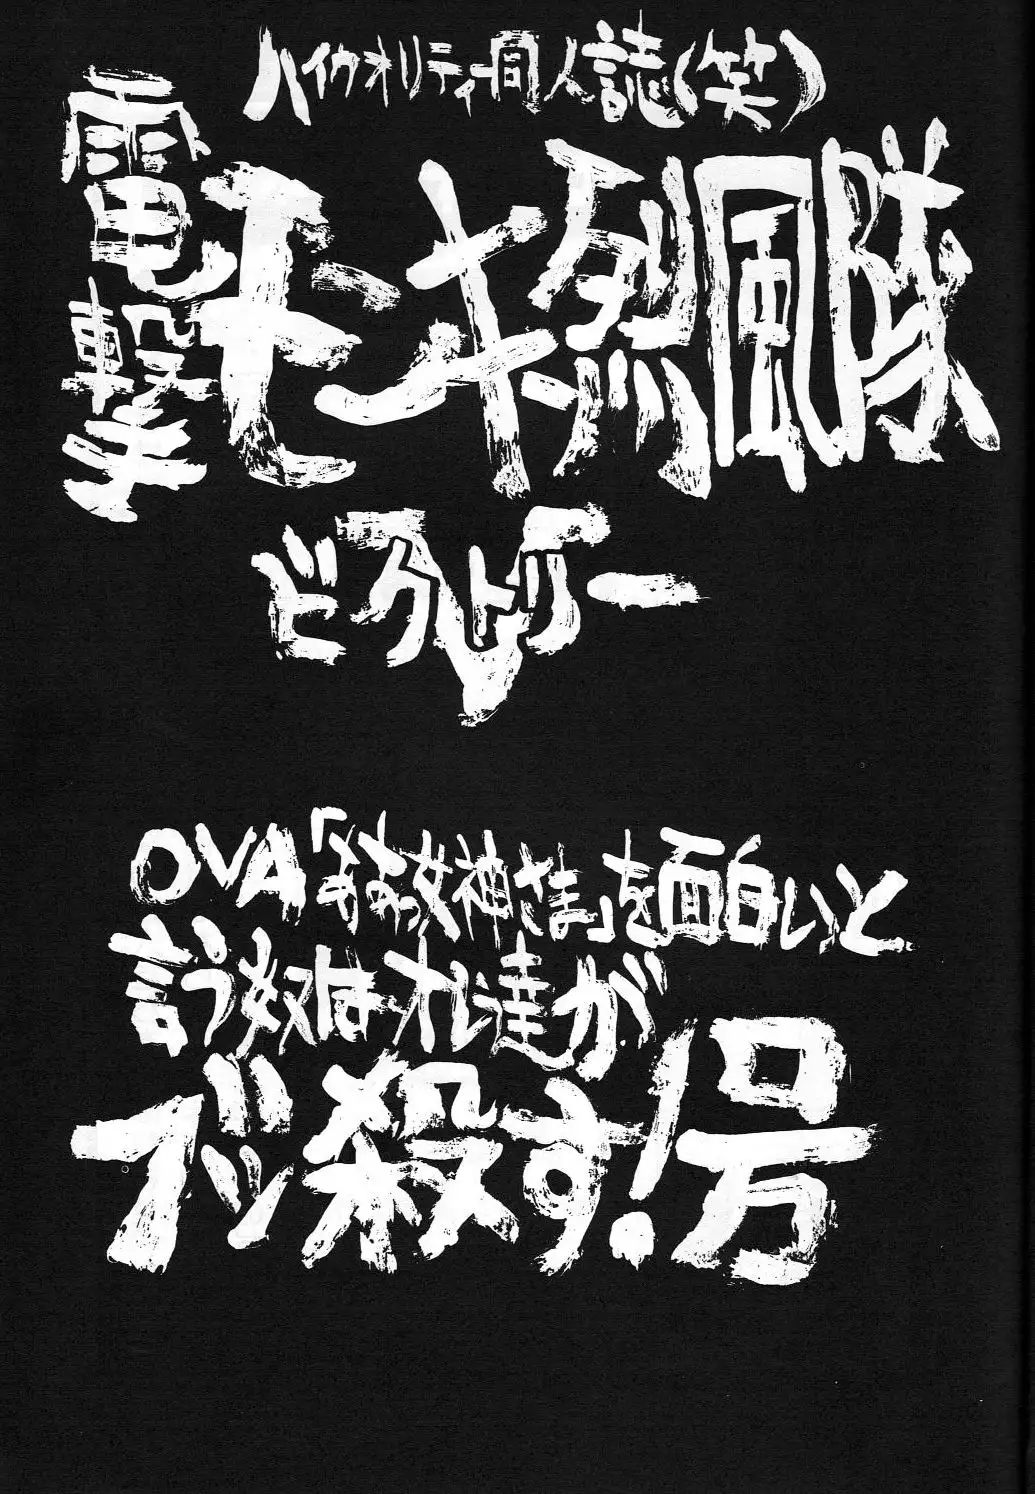 ハイクオリティー同人誌(笑)
電撃モンキ烈風隊
ビクトリー
OVA「ああっ女神さま」を面白いと
言う奴はオレ達が
ブッ殺す!号